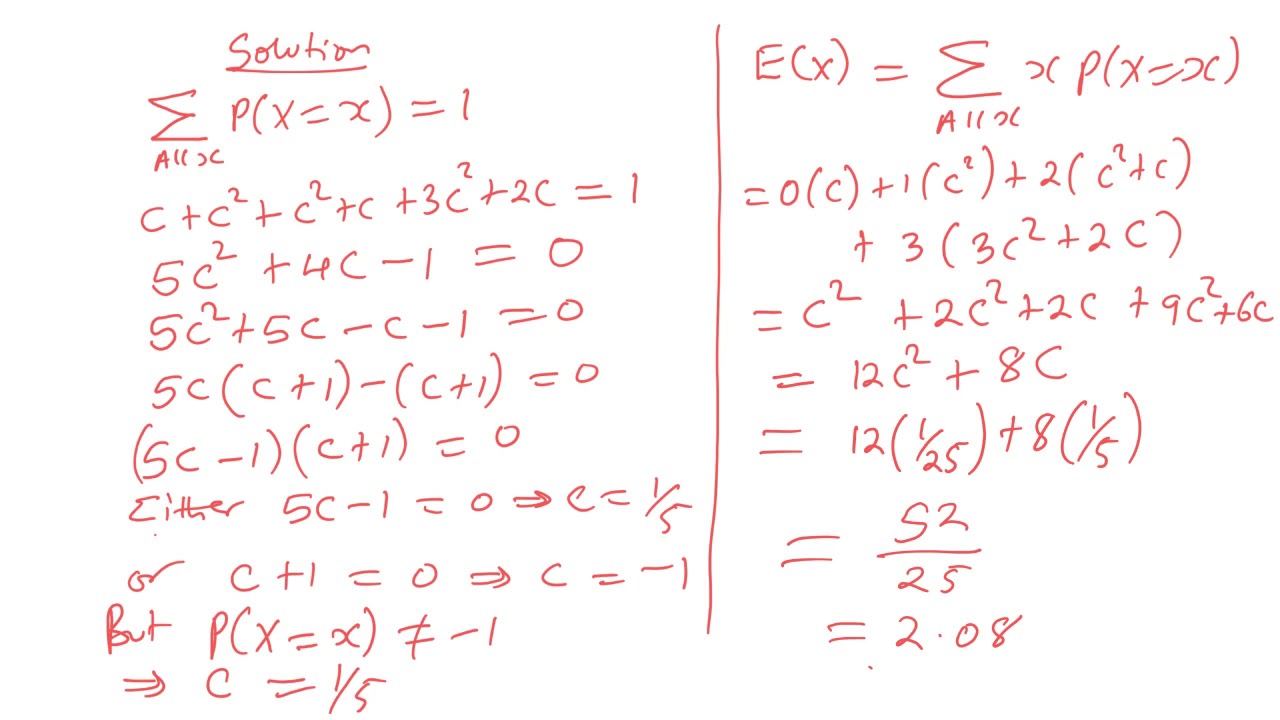 Solution
∑ P(X=x) = 1
All x
c + c² + c² + c + 3c² + 2c = 1
5c² + 4c - 1 = 0
5c² + 5c - c - 1 = 0
5c(c+1) - (c+1) = 0
(5c-1)(c+1) = 0
Either 5c-1 = 0 ⇒ c = 1/5
or c+1 = 0 ⇒ c = -1
But P(X=x) ≠ -1
⇒ c = 1/5
E(x) = ∑ x P(X=x)
All x
= 0(c) + 1(c²) + 2(c²+c)
+ 3(3c²+2c)
= c² + 2c² + 2c + 9c² + 6c
= 12c² + 8c
= 12(1/25) + 8(1/5)
= 52/25
= 2.08